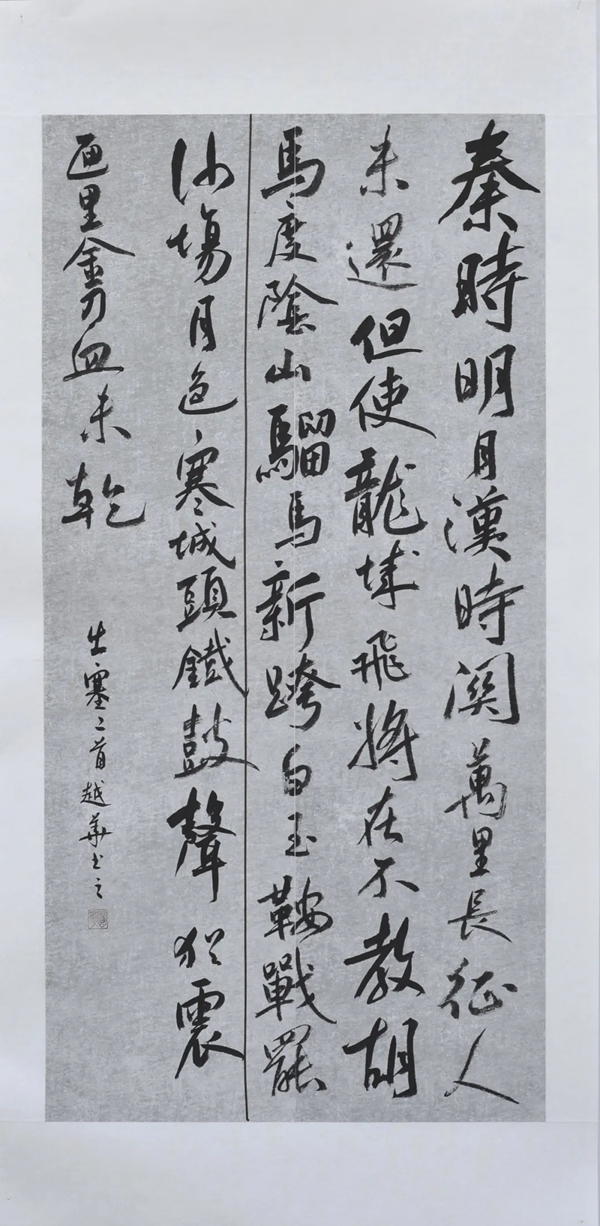 秦時明月漢時関萬里長征人
未還但使龍城飛將在不教胡
馬度陰山騮馬新跨白玉鞍戰罷
沙場月色寒城頭鐵鼓聲猶震
匣里金刀血未乾
出塞二首越華書之